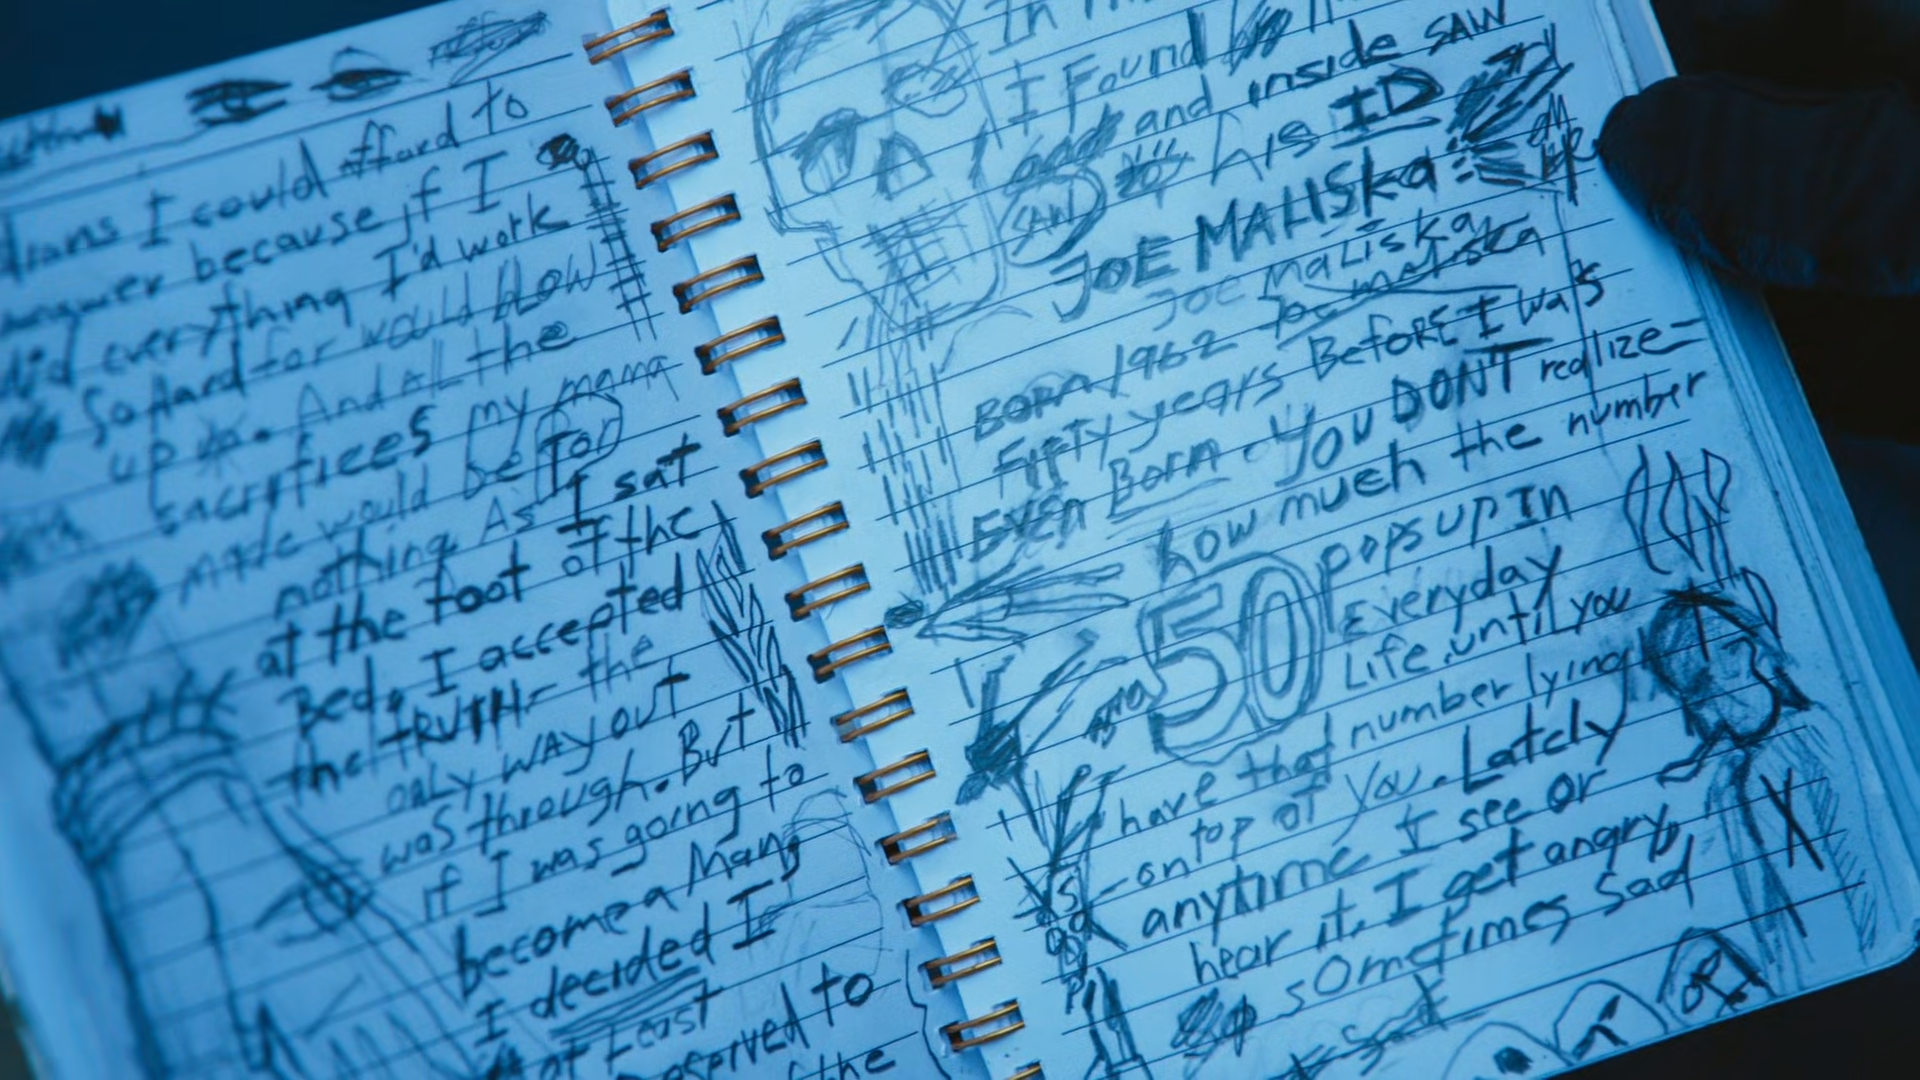 I could afford to
because if I
did everything I'd work
so Hard for would blow
up. And ALL the
sacrifices my mama
made would be for
nothing. As I sat
at the foot of the
Bed, I accepted
the TRUTH - the
ONLY WAY OUT
was through. But
if I was going to
become a Man,
I decided I
at Least
deserved to
the
In
I Found
and inside SAW
SAW his ID
JOE MALISKa:
Joe Maliska
Joe maliska
BORN 1962
FiFty years Before I was
EVEN Born. You DONT realize-
how much the number
50 pops up IN
Everyday
Life, until you
have that number lying
-on top of you. Lately
anytime I see or
hear it, I get angry,
sometimes Sad